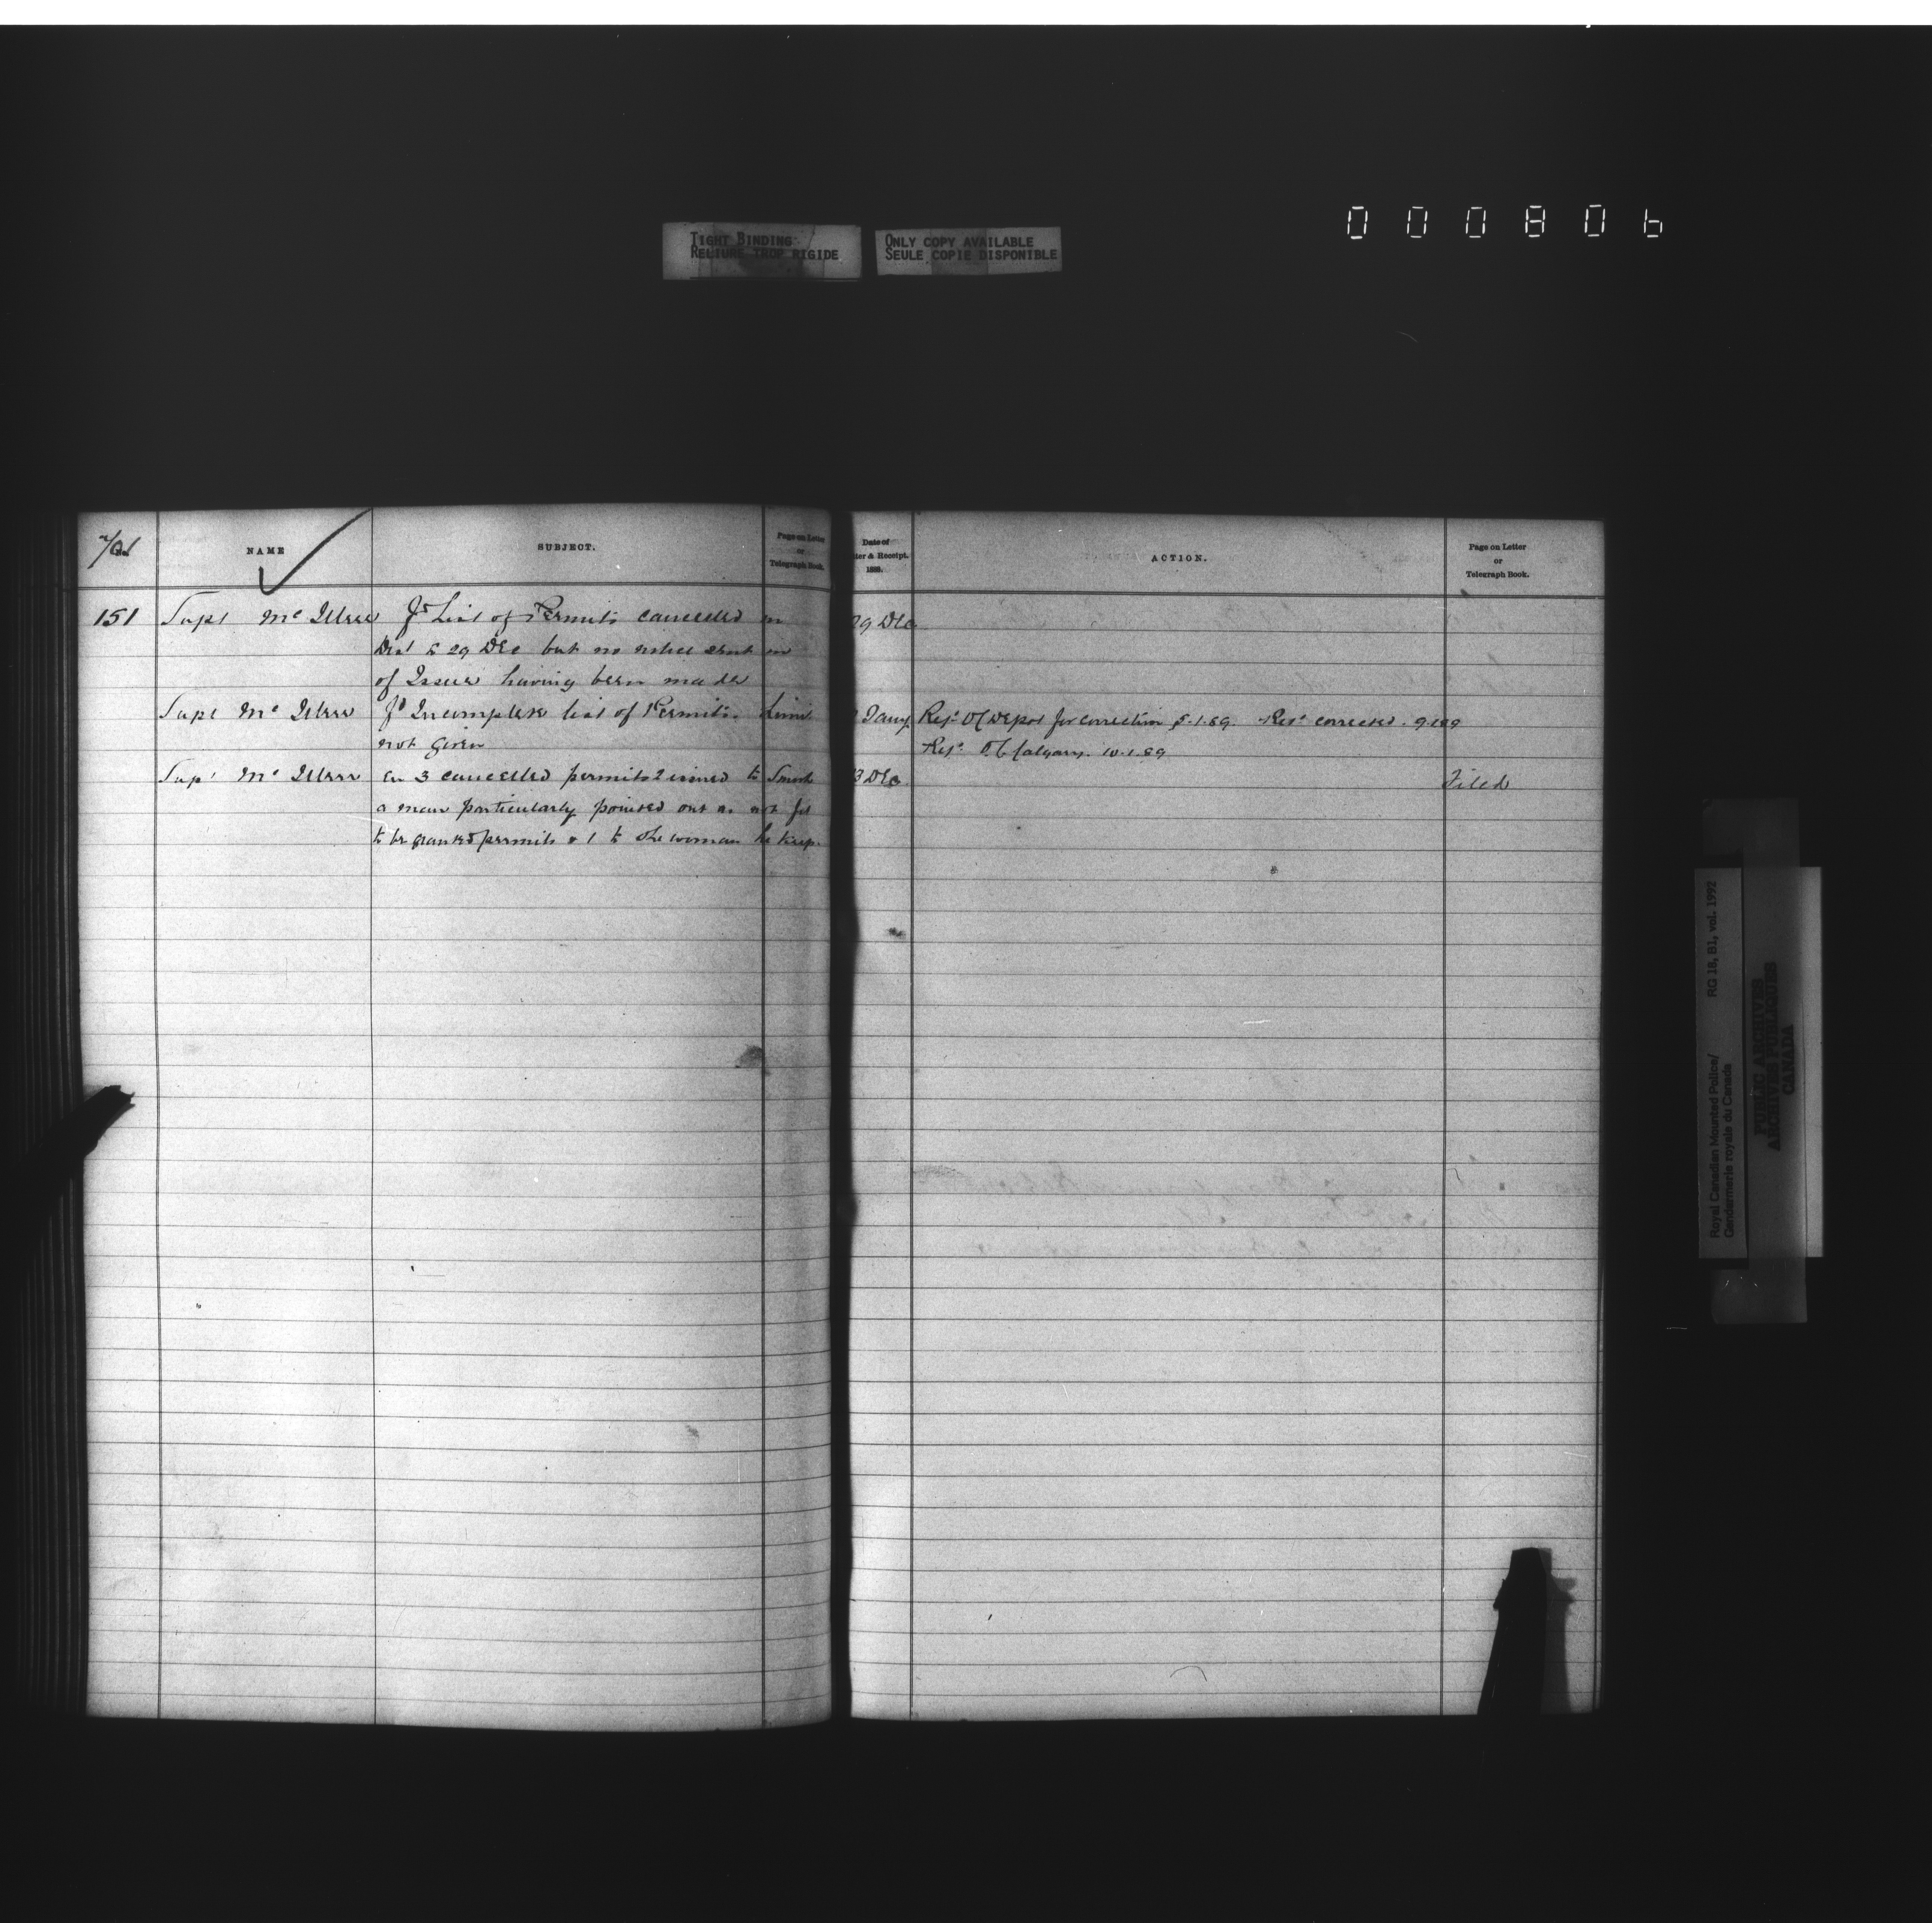 000806
TIGHT BINDING
RELIURE TROP RIGIDE
ONLY COPY AVAILABLE
SEULE COPIE DISPONIBLE
NAME
SUBJECT.
Page on Letter
or
Telegraph Book.
Date of
ter & Receipt.
188
ACTION.
Page on Letter
or
Telegraph Book.
151 Supt Mc Illree fd List of Permits cancelled in 29 Dec
Dist to 29 Dec but no notice sent in
of Issue having been made
Supt Mc Illree fd Incomplete list of Permits. Limit Jany Refd O/C Depot for correction 5.1.89. Retd corrected. 9.1.89
not given Refd O.C. Calgary. 10.1.89
Supt Mc Illree En 3 cancelled permits 2 issued to Smith 3 Dec Filed
a man particularly pointed out as not fit
to be granted permits & 1 to the woman he keeps.
Royal Canadian Mounted Police/
Gendarmerie royale du Canada
RG 18, B1, vol. 1992
PUBLIC ARCHIVES
ARCHIVES PUBLIQUES
CANADA